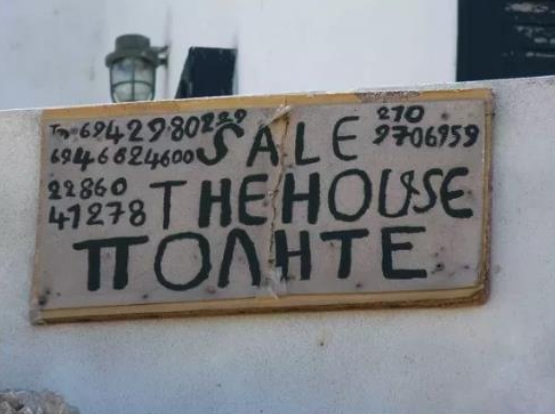 Τηλ 6942980229 SALE 210
6946624600 9706959
22860 THE HOUSE
41278
ΠΟΛΗΤΕ